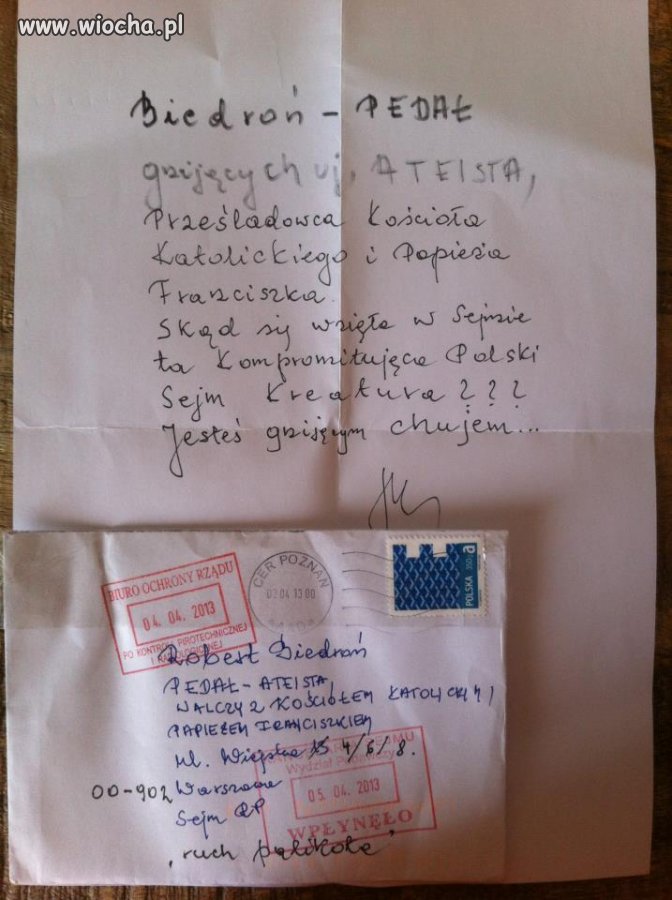 www.wiocha.pl
Biedroń - PEDAŁ
gnijący chuj, ATEISTA,
Prześladowca Kościoła
Katolickiego i Papieża
Franciszka.
Skąd się wzięła w Sejmie
ta Kompromitująca Polski
Sejm Kreatura ???
Jesteś gnijącym chujem...
BIURO OCHRONY RZĄDU
04. 04. 2013
PO KONTROLI PIROTECHNICZNEJ
I RADIOLOGICZNEJ
CER POZNAŃ
02 04 13 00
POLSKA
a
Robert Biedroń
PEDAŁ - ATEISTA,
WALCZY Z KOŚCIOŁEM KATOLICKIM I
PAPIEŻEM FRANCISZKIEM
ul. Wiejska 4/6/8.
00-902 Warszawa
Sejm RP
"ruch palikota"
SEJMU
Wydział Podawczy
05. 04. 2013
WPŁYNĘŁO